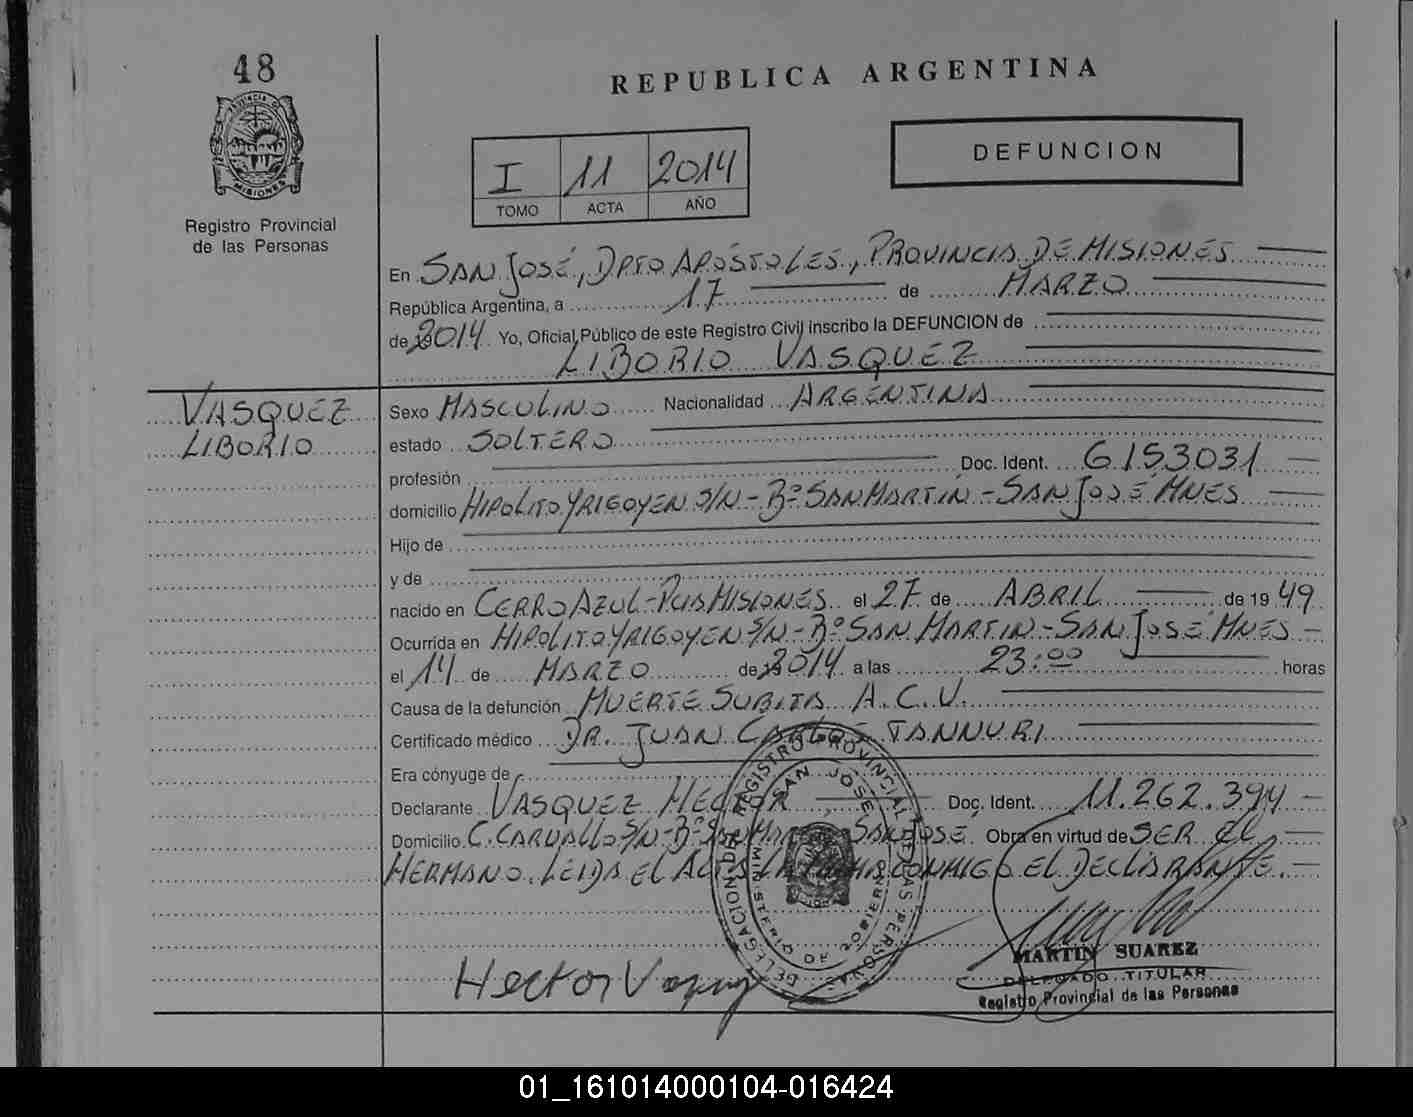 48
REPUBLICA ARGENTINA
PROVINCIA DE
MISIONES
Registro Provincial
de las Personas
I 11 2014
TOMO ACTA AÑO
DEFUNCION
En SAN JOSÉ, DPTO APÓSTOLES, PROVINCIA DE MISIONES
República Argentina, a 17 de MARZO
de 2014 Yo, Oficial Público de este Registro Civil inscribo la DEFUNCION de
LIBORIO VASQUEZ
VASQUEZ
LIBORIO
Sexo MASCULINO Nacionalidad ARGENTINA
estado SOLTERO
profesión Doc. Ident. 6153031
domicilio HIPOLITO YRIGOYEN S/N - Bº SAN MARTIN - SAN JOSÉ MNES
Hijo de
y de
nacido en CERRO AZUL - PCIA MISIONES el 27 de ABRIL de 1949
Ocurrida en HIPOLITO YRIGOYEN S/N - Bº SAN MARTIN - SAN JOSÉ MNES
el 14 de MARZO de 2014 a las 23:00 horas
Causa de la defunción MUERTE SUBITA A.C.V.
Certificado médico DR. JUAN CARLOS TANNURI
Era cónyuge de
Declarante VASQUEZ HECTOR Doc. Ident. 11.262.394
Domicilio C. CARVALLO S/N - Bº SAN MAR SAN JOSÉ. Obra en virtud de SER EL
HERMANO. LEIDA EL ACTA LA FIRMA CONMIGO EL DECLARANTE.
DELEGACION DEL REGISTRO PROVINCIAL DE LAS PERSONAS
SAN JOSE
MINISTERIO DE GOBIERNO
Hector Vasquez
MARTIN SUAREZ
DELEGADO TITULAR
Registro Provincial de las Personas
01_161014000104-016424